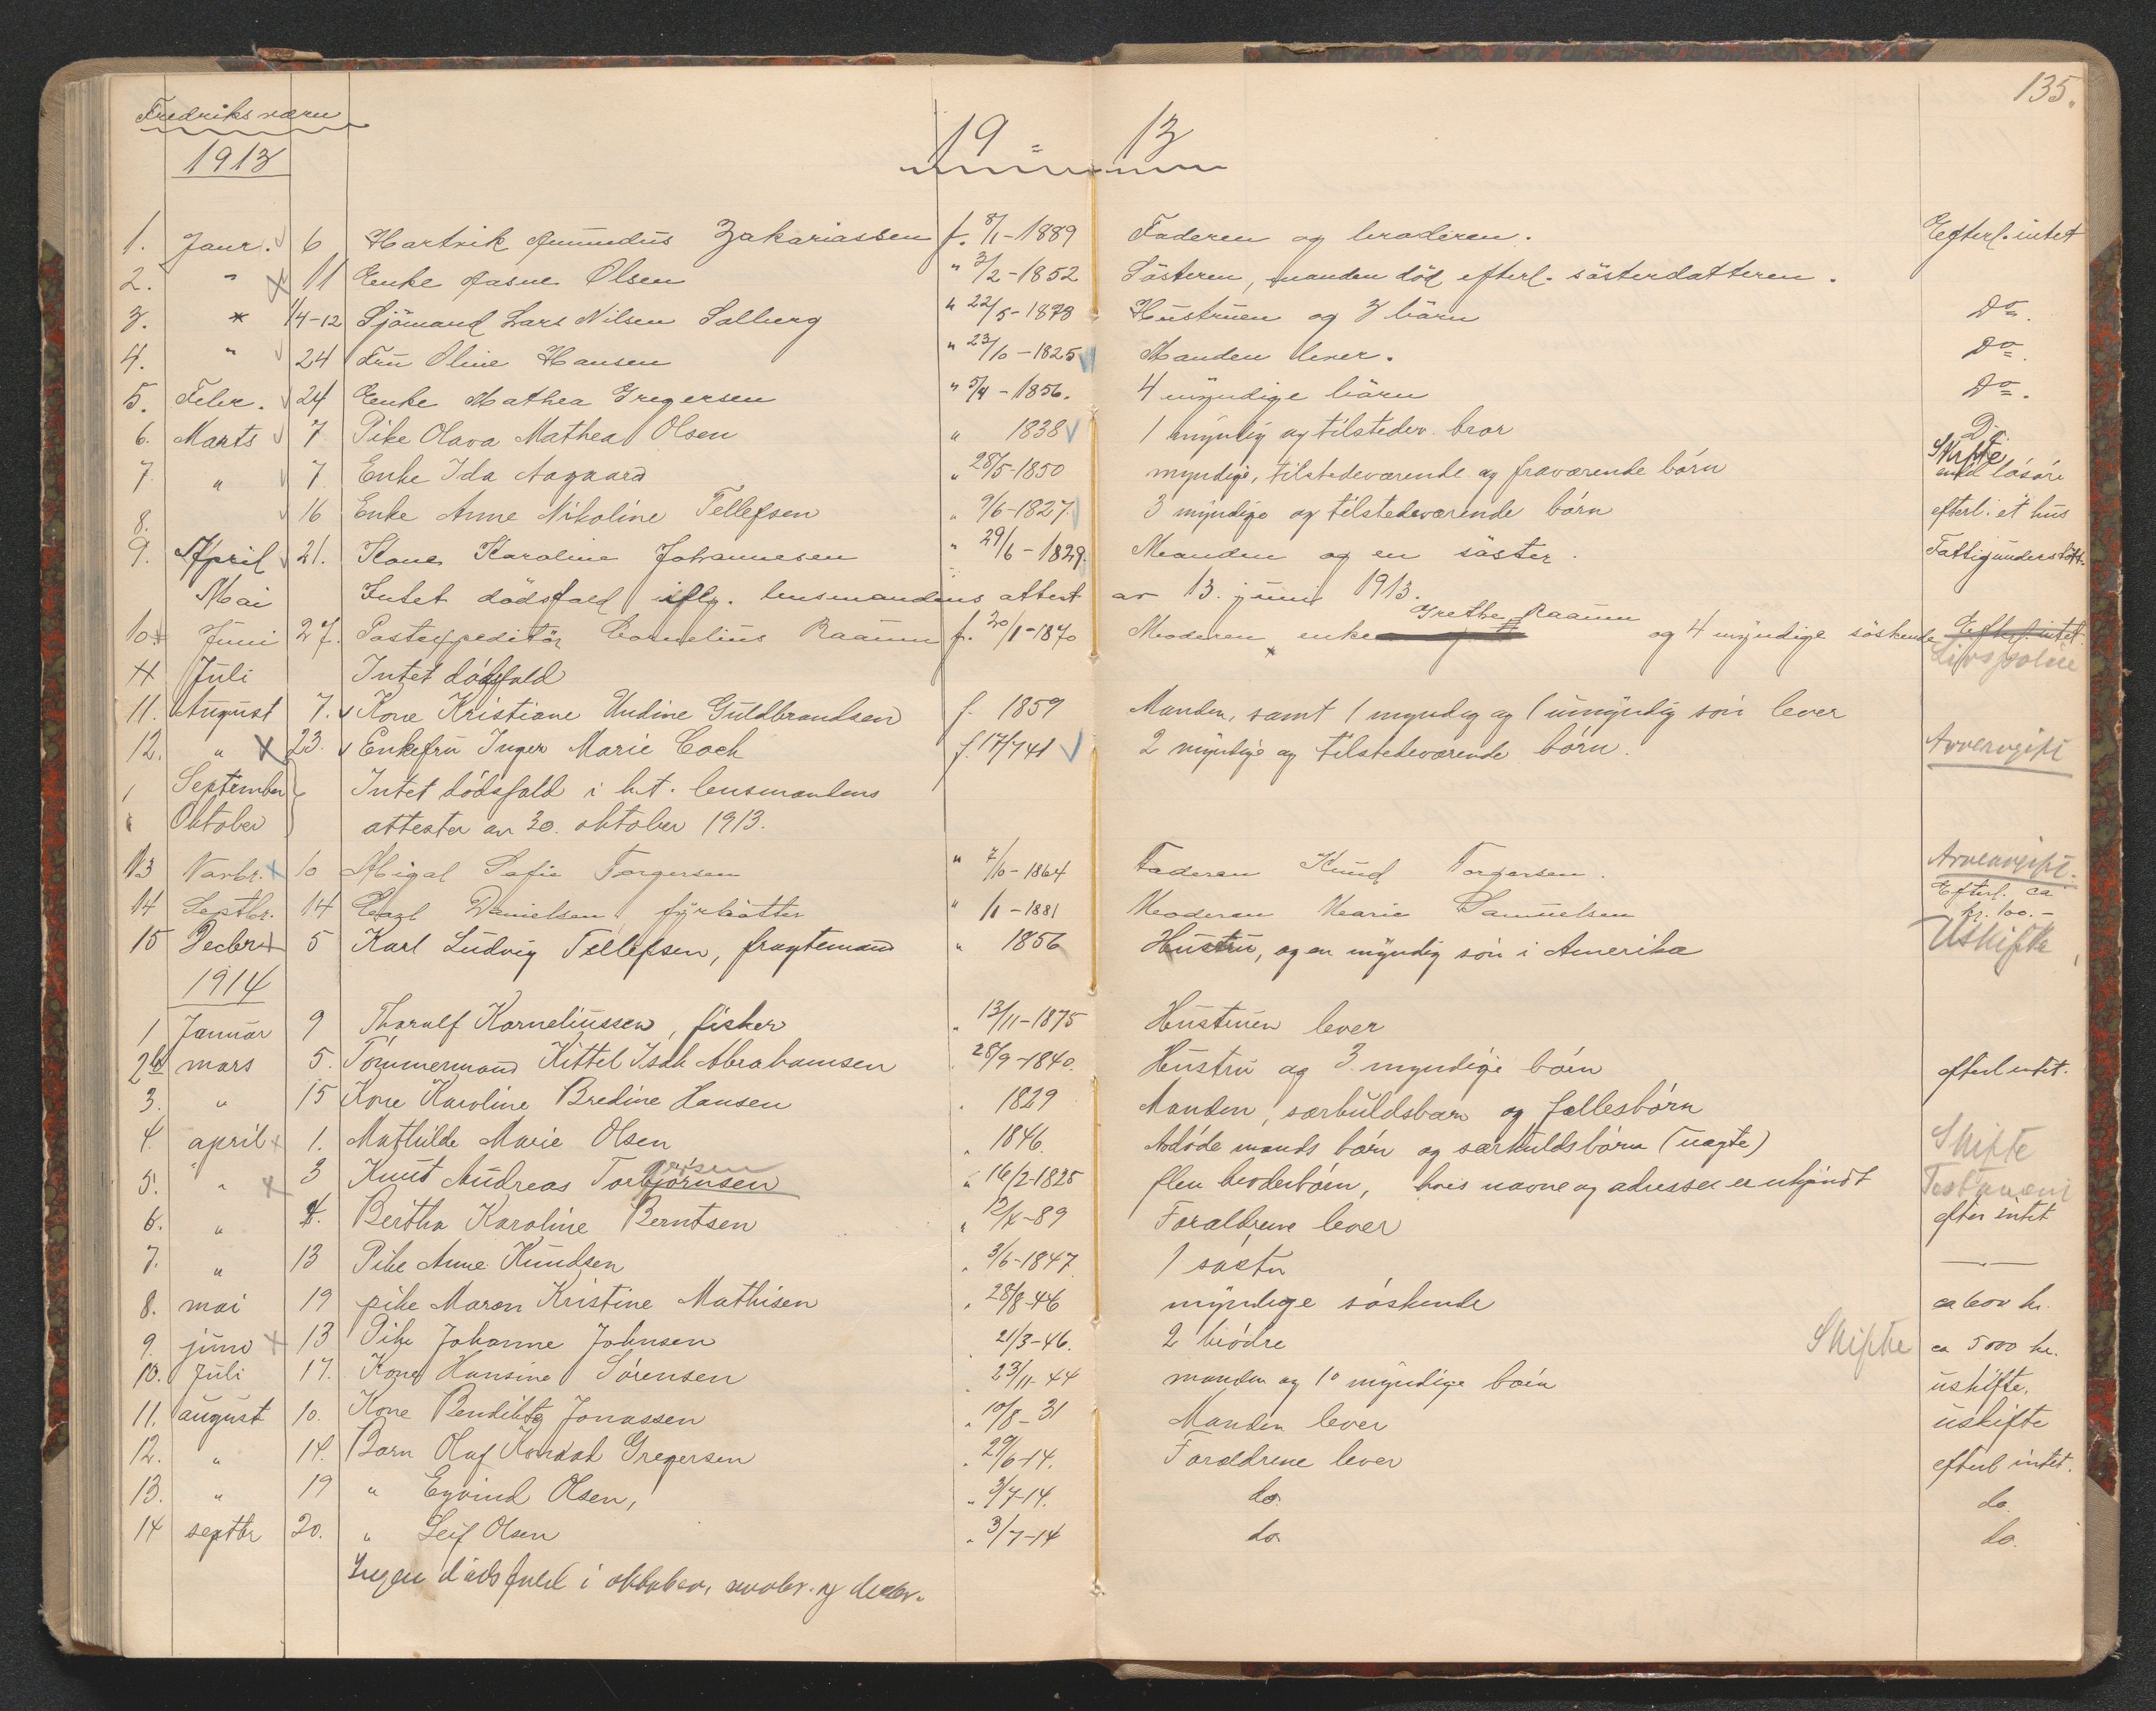 135.
Fredriksværn
19 13
1913
1. Janr. 6 Hartvik Amundus Zakariassen f. 8/1-1889 Faderen og broderen. Efterl. intet
2. " 11 Enke Aasne Olsen " 3/2-1852 Søsteren, manden död efterl. sösterdatteren.
3. * 1/4-12 Sjömand Lars Nilsen Solberg " 22/5-1878 Hustruen og 3 börn Do.
4. " 24 Fru Oline Hansen " 23/10-1825 Manden lever. Do.
5. Febr. 24 Enke Mathea Gregersen " 5/4-1856. 4 myndige börn Do.
6. Marts 7 Pike Olava Mathea Olsen " 1838 1 myndig og tilstedev. bror D.
7. " 7. Enke Ida Aagaard " 28/5-1850 myndige, tilstedeværende og fraværende börn Skifte lösöre
8. 16 Enke Anne Nikoline Tellefsen " 9/6-1827 3 myndige og tilstedeværende börn efterl. et hus
9. April 21. Kone Karoline Johannesen " 29/6-1829. Manden og en söster. Fattigunderstött.
Mai Intet dödsfald iflg. lensmandens attest av 13. juni 1913.
10 Juni 27. Postexpeditör Cornelius Raaum f. 20/1-1870 Moderen enke Grethe Raaum og 4 myndige söskende Efterl. intet Livspolice
Juli Intet dödsfald
11. August 7. Kone Kristiane Undine Guldbrandsen f. 1859 Manden, samt 1 myndig og 1 umyndig sön lever
12. " 23. Enkefru Inger Marie Coch f. 17/7 41 2 myndige og tilstedeværende börn. Arveavgift
September Intet dödsfald i h.t. lensmandens
Oktober attester av 30. oktober 1913.
13 Novbr. 10 Abigal Sofie Torgersen " 7/10-1864 Faderen Knud Torgersen. Arveavgift.
14 Septbr. 14 Carl Danielsen fyrböter " 1/1-1881 Moderen Marie Samuelsen Efterl. ca kr. 100.-
15 Decbr. 5 Karl Ludvig Tellefsen, fragtemand " 1856 Hustru, og en myndig sön i Amerika Uskifte
1914
1 Januar 9 Thoralf Korneliussen, fisker " 13/11-1875 Hustruen lever
2 mars 5. Tömmermand Kittel Isak Abrahamsen " 28/9-1840. Hustru og 3 myndige börn efterl intet.
3. " 15 Kone Karoline Bredine Hansen " 1829 Manden, særkuldsbarn og fællesbörn
4. april 1. Mathilde Marie Olsen " 1846. Avdöde mands börn og særkuldsbörn (uægte) Skifte
5. " 3 Knut Andreas Torbjörnsen " 16/2-1825 flere broderbörn, hvis navne og adresser er ukjendt Testament
6. " 4. Bertha Karoline Berntsen " 12/4-89 Forældrene lever efterl intet
7. " 13 Pike Anne Knudsen " 3/6-1847 1 söster —"—
8. mai 19 pike Maren Kristine Mathisen " 28/8-46 myndige söskende ca 600 kr.
9. juni 13 Pike Johanne Johnsen 21/3-46. 2 brödre Skifte ca 5000 kr.
10. Juli 17. Kone Hansine Sörensen " 23/11-44 manden og 10 myndige börn uskifte.
11. august 10. Kone Bendikte Jonassen " 10/8-31 Manden lever uskifte
12. " 14. Barn Olaf Konrad Gregersen " 29/6-14. Forældrene lever efterl intet.
13. " 19 " Eyvind Olsen, " 3/7-14. do. do.
14 septbr 20. " Leif Olsen " 3/7-14 do. do.
Ingen dödsfald i oktober, novbr. og decbr.